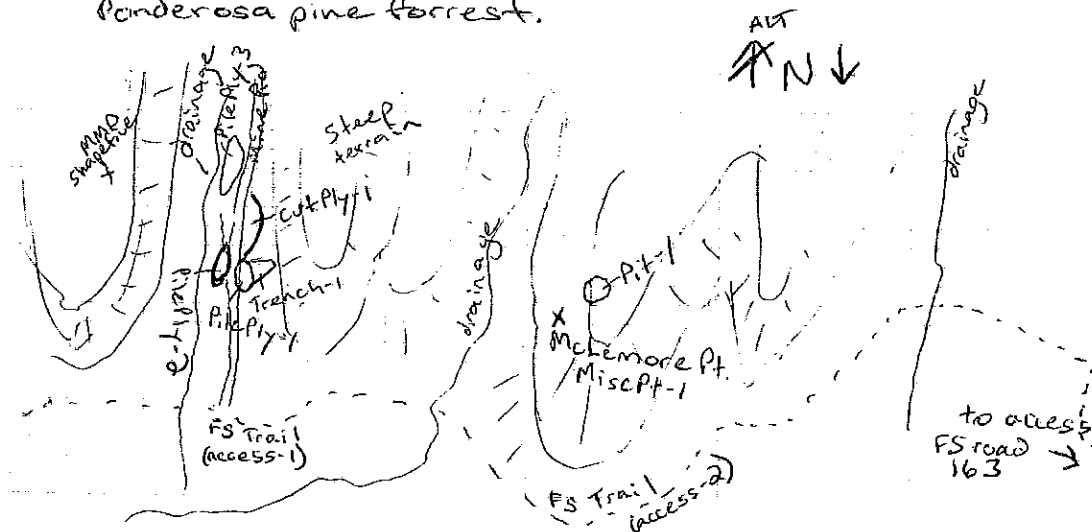 Ponderosa pine forrest.
ALT
N
drainage
PilePly-3
Mine Rd
MMD
shapefile
steep
terrain
CutPly-1
Trench-1
PilePly-1
PilePly-2
drainage
Pit-1
McLemore Pt.
MiscPt-1
drainage
FS Trail
(access-1)
FS Trail
(access-2)
to access
FS road
163